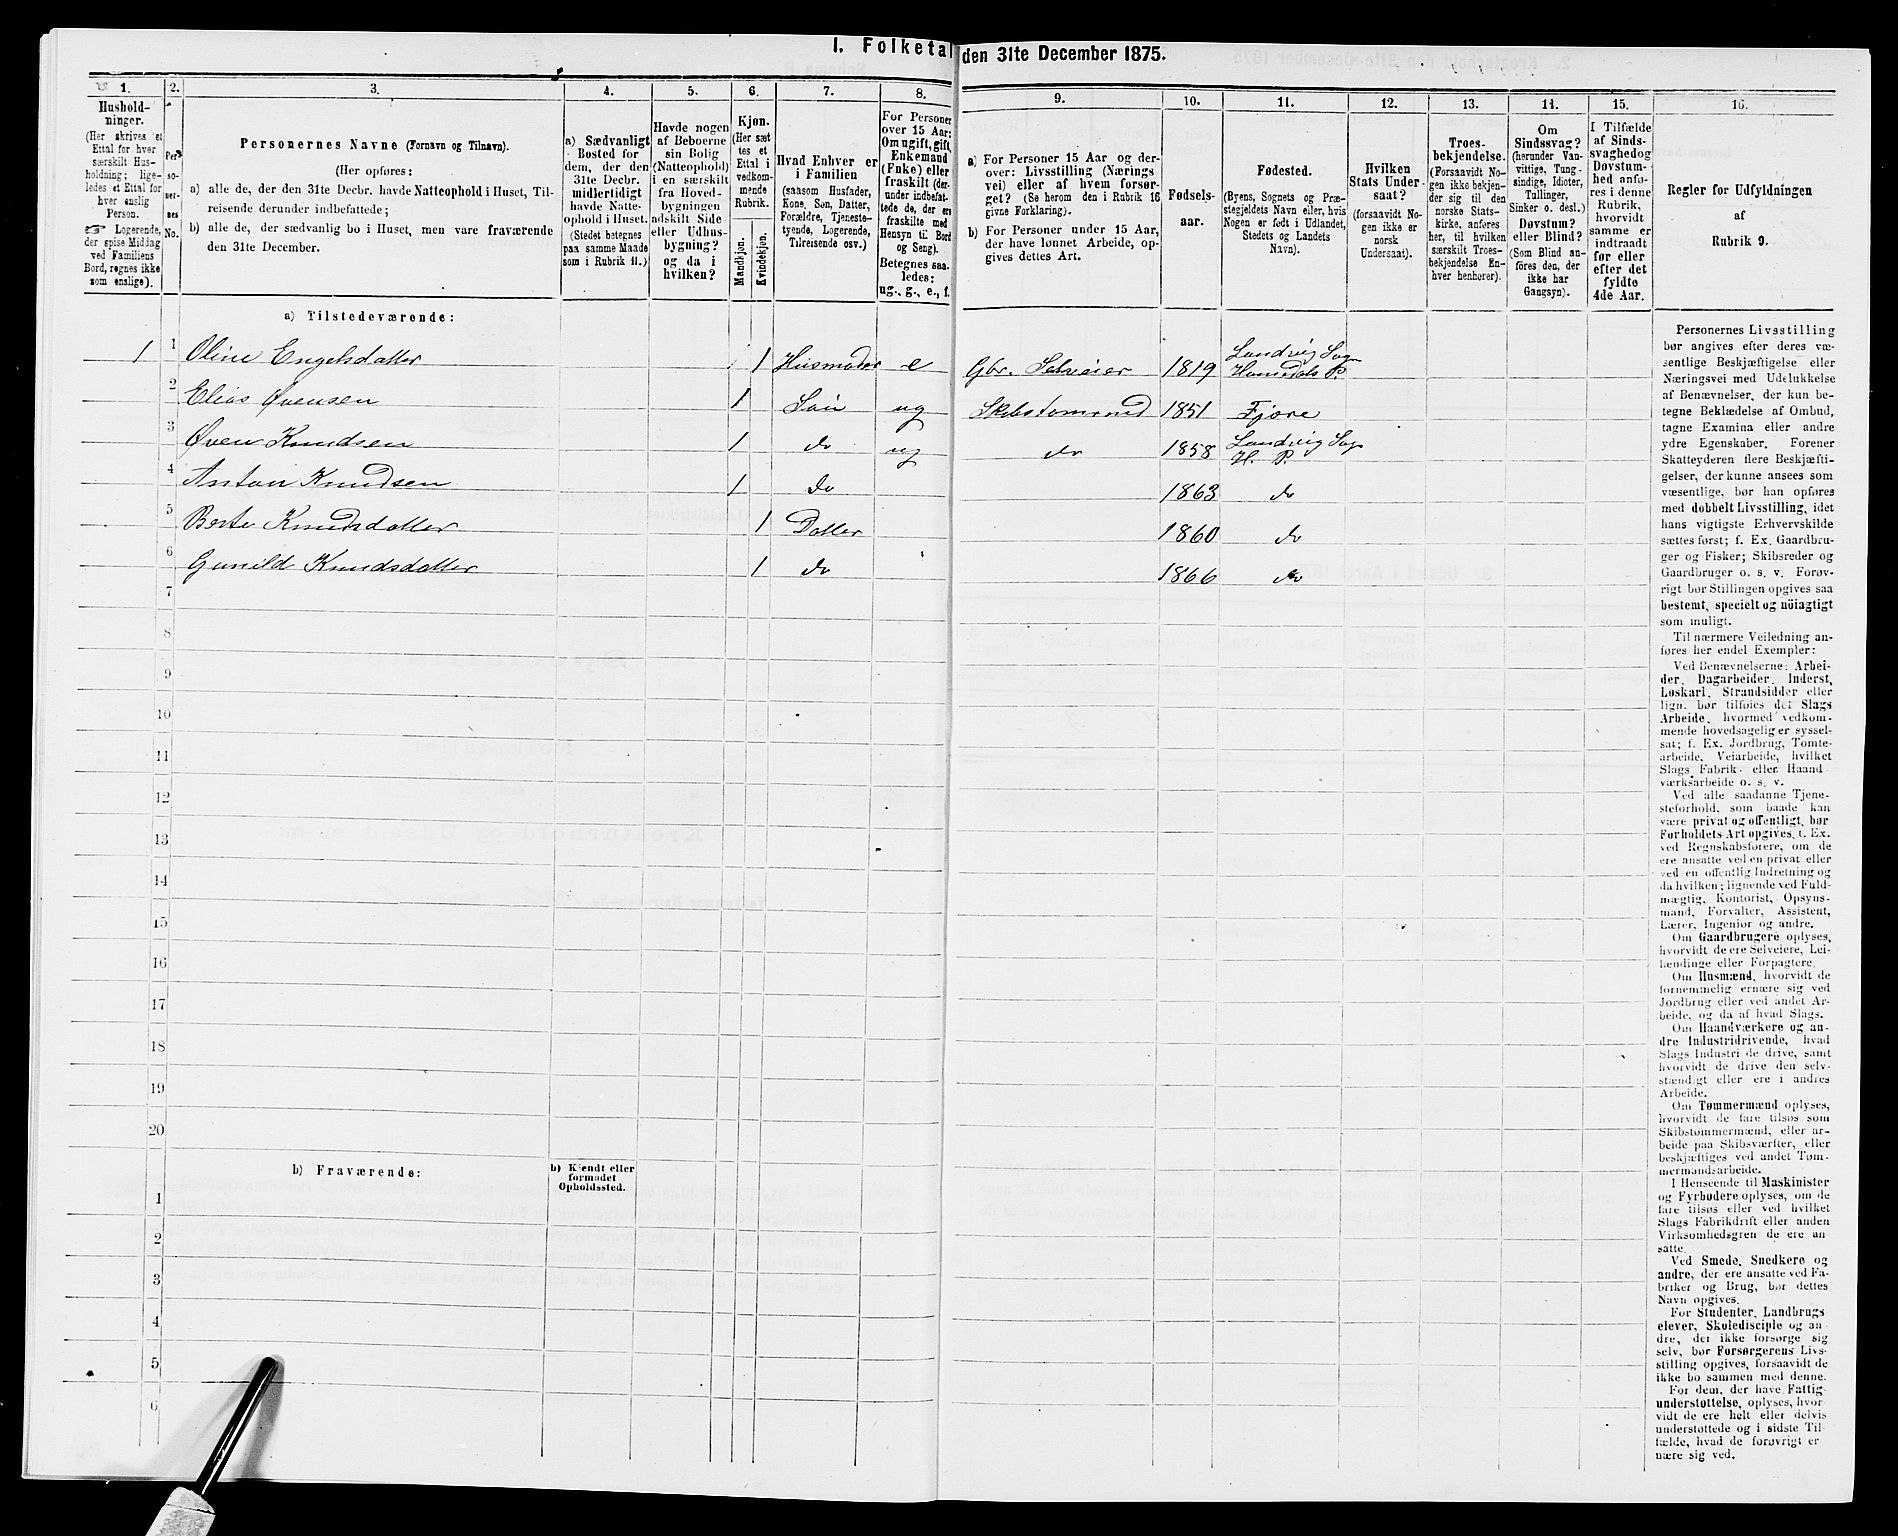 I. Folketal den 31te December 1875.
1. 2. 3. 4. 5. 6. 7. 8. 9. 10. 11. 12. 13. 14. 15. 16.
Hushold-
ninger.
(Her skrives et
Ettal for hver
særskilt Hus-
holdning; lige-
ledes et Ettal for
hver enslig
Person.
☞ Logerende,
der spise Middag
ved Familiens
Bord, regnes ikke
som enslige).
Per-
so-
ner-
nes
No.
Personernes Navne (Fornavn og Tilnavn).
(Her opføres:
a) alle de, der den 31te Decbr. havde Natteophold i Huset, Til-
reisende derunder indbefattede;
b) alle de, der sædvanlig bo i Huset, men vare fraværende
den 31te December.
a) Sædvanligt
Bosted for
dem, der den
31te Decbr.
midlertidigt
havde Natte-
ophold i Huset.
(Stedet betegnes
paa samme Maade
som i Rubrik 11.)
Havde nogen
af Beboerne
sin Bolig
(Natteophold)
i en særskilt
fra Hoved-
bygningen
adskilt Side-
eller Udhus-
bygning?
og da i
hvilken?
Kjøn.
(Her sæt-
tes et
Ettal i
vedkom-
mende
Rubrik.
Mandkjøn.
Kvindekjøn.
Hvad Enhver er
i Familien
(saasom Husfader,
Kone, Søn, Datter,
Forældre, Tjeneste-
tyende, Logerende,
Tilreisende osv.)
For Personer
over 15 Aar:
Om ugift, gift,
Enkemand
(Enke) eller
fraskilt (der-
under indbefat-
tede de, der ere
fraskilte med
Hensyn til Bord
og Seng).
Betegnes saa-
ledes:
ug., g., e., f.
a) For Personer 15 Aar og der-
over: Livsstilling (Nærings
vei) eller af hvem forsør-
get? (Se herom den i Rubrik 16
givne Forklaring).
b) For Personer under 15 Aar,
der have lønnet Arbeide, op-
gives dettes Art.
Fødsels-
aar.
Fødested.
(Byens, Sognets og Præ-
stegjeldets Navn eller, hvis
Nogen er født i Udlandet,
Stedets og Landets
Navn).
Hvilken
Stats Under-
saat?
(forsaavidt No-
gen ikke er
norsk
Undersaat).
Troes-
bekjendelse.
(Forsaavidt No-
gen ikke bekjen-
der sig til den
norske Stats-
kirke, anføres
her, til hvilken
særskilt Troes-
bekjendelse En-
hver henhører).
Om
Sindssvag?
(herunder Van-
vittige, Tung-
sindige, Idioter,
Tullinger,
Sinker o. desl.)
Døvstum?
eller Blind?
(Som Blind an-
føres den, der
ikke har
Gangsyn).
I Tilfælde
af Sinds-
svaghed og
Døvstum-
hed anfø-
res i denne
Rubrik,
hvorvidt
samme er
indtraadt
før eller
efter det
fyldte
4de Aar.
Regler for Udfyldningen
af
Rubrik 9.
a) Tilstedeværende:
1 1 Oline Engelsdatter 1 Husmoder e Gbr. Selveier 1819 Landvig Sogn
Homedals P.
2 Elias Øvensen 1 Søn ug Skibstømmmd 1851 Fjære
3 Øven Knudsen 1 do ug do 1858 Landvig Sogn
H. P.
4 Anton Knudsen 1 do 1863 do
5 Berte Knudsdatter 1 Datter 1860 do
6 Gunild Knudsdatter 1 do 1866 do
7
8
9
10
11
12
13
14
15
16
17
18
19
20
b) Fraværende:
b) Kjendt eller
formodet
Opholdssted.
1
2
3
4
5
6
Personernes Livsstilling
bør angives efter deres væ-
sentlige Beskjæftigelse eller
Næringsvei med Udelukkelse
af Benævnelser, der kun be-
tegne Beklædelse af Ombud,
tagne Examina eller andre
ydre Egenskaber. Forener
Skatteyderen flere Beskjæfti-
gelser, der kunne ansees som
væsentlige, bør han opføres
med dobbelt Livsstilling, idet
hans vigtigste Erhvervskilde
sættes først; f. Ex. Gaardbru-
ger og Fisker; Skibsreder og
Gaardbruger o. s. v. Forøv-
rigt bør Stillingen opgives saa
bestemt, specielt og nöiagtigt
som muligt.
Til nærmere Veiledning an-
føres her endel Exempler:
Ved Benævnelserne: Arbei-
der, Dagarbeider, Inderst,
Løskarl, Strandsidder eller
lign. bør tilføies det Slags
Arbeide, hvormed vedkom-
mende hovedsagelig er syssel-
sat; f. Ex. Jordbrug, Tomte-
arbeide, Veiarbeide, hvilket
Slags Fabrik- eller Haand-
værksarbeide o. s. v.
Ved alle saadanne Tjene-
steforhold, som baade kan
være privat og offentligt, bør
Forholdets Art opgives, f. Ex.
ved Regnskabsførere, om de
ere ansatte ved en privat eller
ved en offentlig Indretning og
da hvilken; lignende ved Fuld-
mægtig, Kontorist, Opsyns-
mand, Forvalter, Assistent,
Lærer, Ingeniør og andre.
Om Gaardbrugere oplyses,
hvorvidt de ere Selveiere, Lei-
lændinge eller Forpagtere.
Om Husmænd, hvorvidt de
fornemmelig ernære sig ved
Jordbrug eller ved andet Ar-
beide, og da af hvad Slags.
Om Haandværkere og an-
dre Industridrivende, hvad
Slags Industri de drive, samt
hvorvidt de drive den selv-
stændigt eller ere i andres
Arbeide.
Om Tømmermænd oplyses,
hvorvidt de fare tilsøs som
Skibstømmermænd, eller ar-
beide paa Skibsværfter, eller
beskjæftiges ved andet Tøm-
mermandsarbeide.
I Henseende til Maskinister
og Fyrbødere oplyses, om de
fare tilsøs eller ved hvilket
Slags Fabrikdrift eller anden
Virksomhedsgren de ere an-
satte.
Ved Smede, Snedkere og
andre, der ere ansatte ved Fa-
briker og Brug, bør dettes
Navn opgives.
For Studenter, Landbrugs
elever, Skoledisciple og an-
dre, der ikke forsørge sig
selv, bør Forsørgerens Livs-
stilling opgives, forsaavidt de
ikke bo sammen med denne.
For dem, der have Fattig-
understøttelse, oplyses, hvor-
vidt de ere helt eller delvis
understøttede og i sidste Til-
fælde, hvad de forøvrigt er-
nære sig ved.